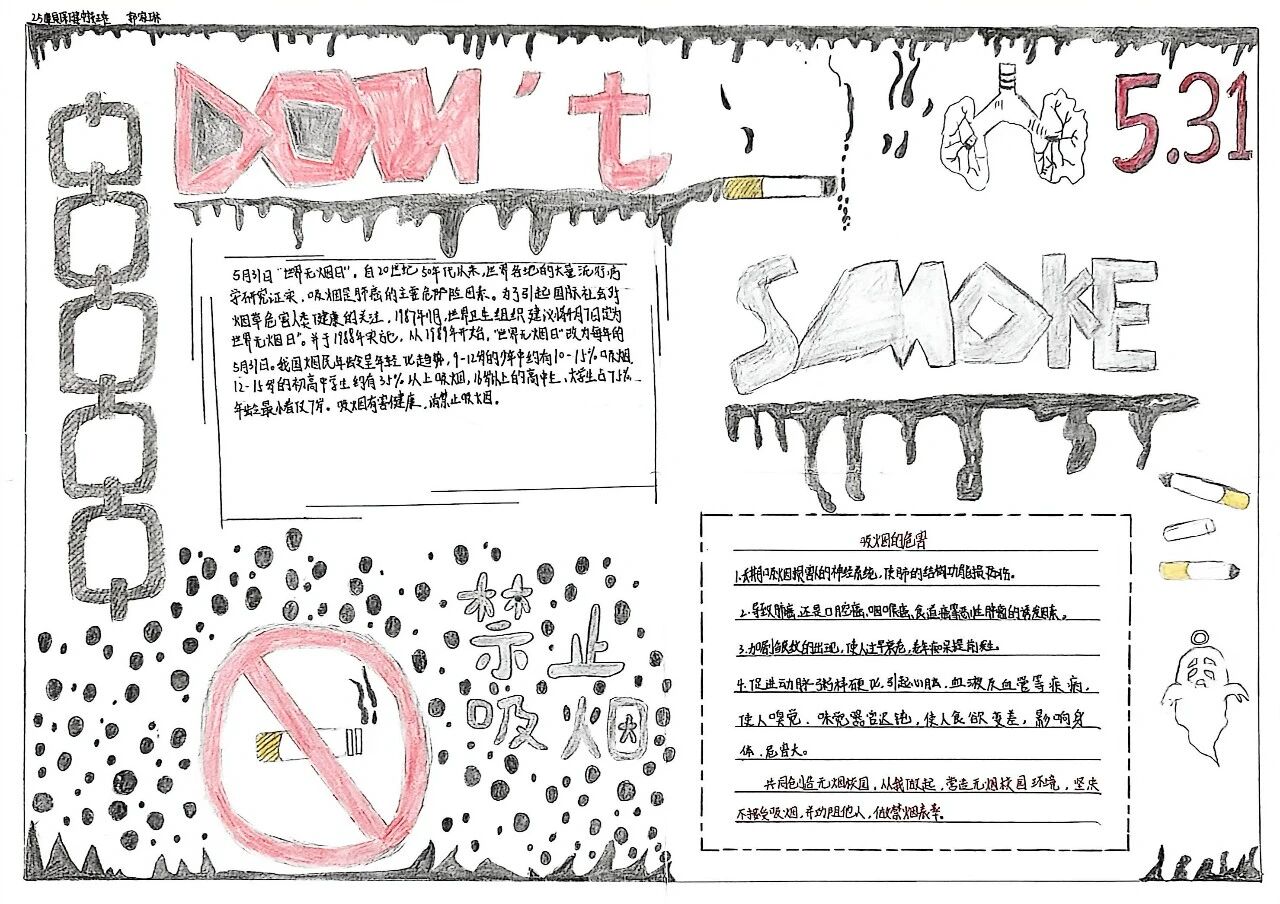 郭家琳
DON't
5.31
5月31日"世界无烟日"。自20世纪50年代以来,世界各地的大量流行病
学研究证实,吸烟是肺癌的主要危险因素。为了引起国际社会对
烟草危害人类健康的关注,1987年11月,世界卫生组织建议将4月7日定为
世界无烟日"。并于1988年实施,从1989年开始,"世界无烟日"改为每年的
5月31日。我国烟民年龄呈年轻化趋势,9-12岁的少年中约有10-15%吸烟,
12-15岁的初高中学生约有35%以上吸烟,16岁以上的高中生、大学生占75%
年龄最小者仅7岁。吸烟有害健康,请禁止吸烟。
SMOKE
禁止
吸烟
吸烟的危害
1.长期吸烟损害人的神经系统,使肺的结构功能损伤。
2.导致肺癌,还是口腔癌、咽喉癌、食道癌等恶性肿瘤的诱发因素。
3.加剧皱纹的出现,使人过早衰老,老年痴呆提前发生。
4.促进动脉粥样硬化,引起心脏、血液及血管等疾病,
使人嗅觉、味觉器官迟钝,使人食欲变差,影响身
体,危害大。
共同创造无烟校园,从我做起,营造无烟校园环境,坚决
不接受吸烟,并劝阻他人,做禁烟表率。